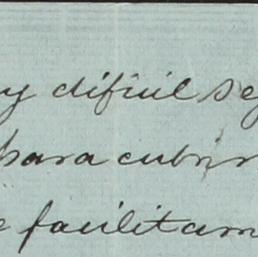 y dificil se
para cubrir
e facilitam